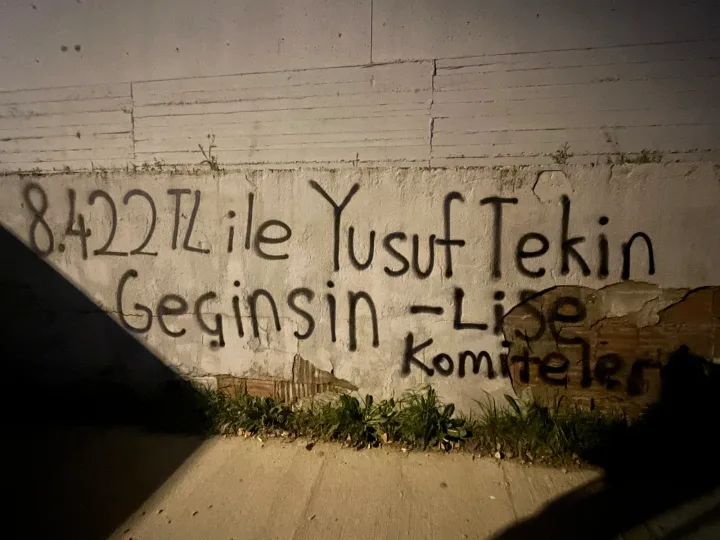 8.422 TL ile Yusuf Tekin
Geçinsin - Lise
Komiteleri